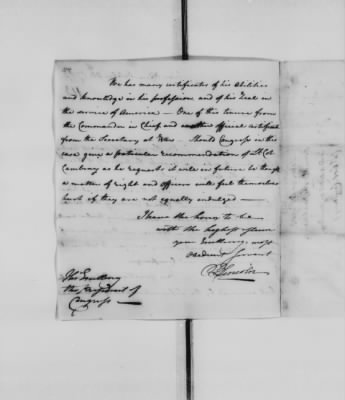 He has many certificates of his Abilities
and knowledge in his profession and of his Zeal in
the service of America — One of this tenure from
the Commander in Chief and another official certificate
from the Secretary at War. Should Congress in this
case give a particular recommendation of Lt Col
Cambray as he requests it will in future be thought
a matter of right and officers will feel themselves
hurt if they are not equally indulged —
I have the honor to be
with the highest esteem
your Excellency's most
obedient Servant
B Lincoln
His Excellency
the President of
Congress